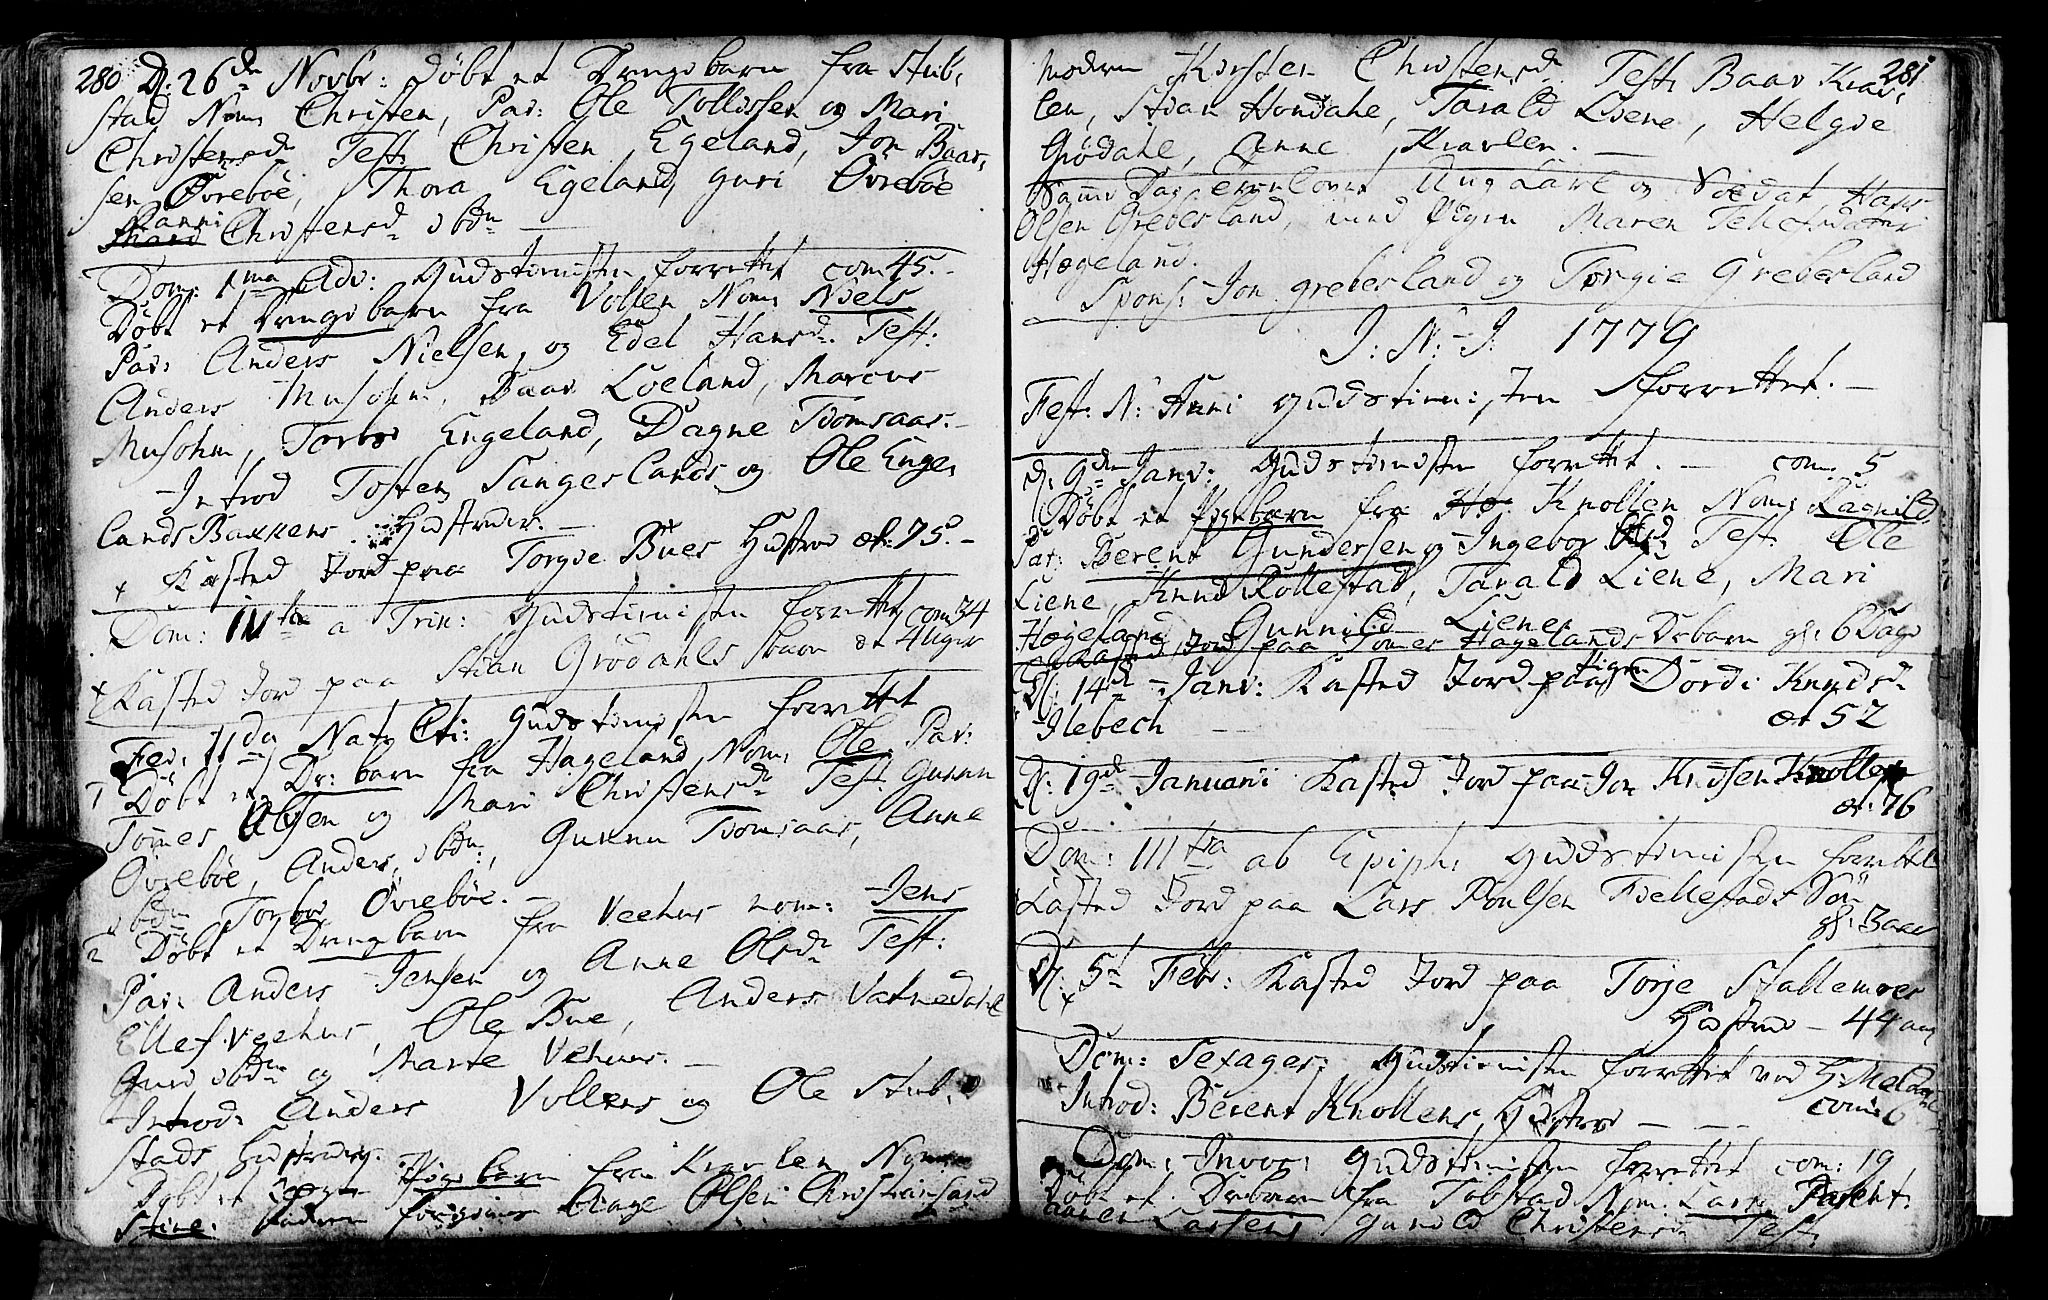 280 D: 26de Novbr: døbt et Drengebarn fra Stub,
stad Nom: Christen, Par: Ole Tollissen og Mari
Christensd. Test: Christen Egeland, Jon Baar,
sen Øvrebøe, Thora Egeland, Guri Øvrebøe
Christensd ibdn
Dom: 1ma Adv: Gudstienisten forrettet com 45.
Døbt et Drengebarn fra Vollen Nom: Niels
Par: Anders Nielsen, og Edel Hansd. Test:
Anders Musohm, Baar Loeland, Marcus
Musohm, Torbor Engeland, Dagne Tiomsaas.
Introd Tosten Sangeslands og Ole Enge,
lands Bakkens Hustruer.
+ Kasted Jord paa Torgie Bues Hustroe æt: 75.
Dom: IVta a Trin: Gudstienisten forrettet com 34
+ Kasted Jord paa Stian Grødahls barn æt 4 Uger
Fer: IIda Nat: Cti: Gudstienisten forrettet
1 Døbt et Dr: barn fra Hageland Nom: Ole. Par:
Tomes Olsen og Mari Christensd. Test: Gunnu
Øvrebøe, Anders ibdn, Gunnu Tiomsaas, Anne
ibdn Torbor Øvrebøe.
2 Døbt et Drengbarn fra Veehus nom: Jens
Par: Anders Jensen og Anne Olsd. Test:
Ellef Veehus, Ole Bue, Anders Vatnedahl
Guri ibdn og Marte Vehuus.
Introd: Anders Vollens og Ole Stub,
stads Hustruer.
Døbt et Pigebarn fra Kravlen Nom
Stine: Faderen Aage Olsen Christiansand
281
Moderen Kirsten Christensd. Test: Baar Krav,
len, Stian Hondahl, Tarald Liene, Helgie
Grødahl, Anne Kravlen.
Samme Dag Trolovet Ung Karl og Soldat, Hans
Olsen Greibesland, med Pigen Maren Tellefsdatter
Hægeland.
Spons: Jon Greibesland og Torgie Greibesland
J: N: J: 1779
Fest: N: Anni Gudstienisten forrettet.
d. 9de Janv: Gudstienisten forrettet. com. 5
Døbt et Pigebarn fra Knollen Nom: Ragnild.
Par: Berent Gundersen og Ingebor Test: Ole
Liene, Knud Rollestad, Tarald Liene, Mari
Hægeland Gunnild Liene.
Kasted Jord paa Tomes Hagelands Drbarn gl: 6 Dage
D: 14de Janv: Kasted Jord paa Pigen Dordi Knudsd.
Ilebech æt 52
D: 19de Januarii Kasted Jord paa Jon Knudsen Knollen
æt: 76
Dom: IIItia ab Epiph: Gudstienisten forrettet
Kasted Jord paa Lars Poulsen Fiellestads Søn
gl: 3 aar
D. 5te Febr: Kasted Jord paa Torje Stallemoes
+ Hustroe – 44 aar
Dom: Sexages: Gudstienisten forrettet ved H:
Introd: Berent Knollens Hustroe com: 6
Dom: Invoc: Gudstienisten forrettet com: 19
Døbt et Drbarn fra Tobstad Nom: Lars Parent:
Larsen Gunild Christensd. Test: